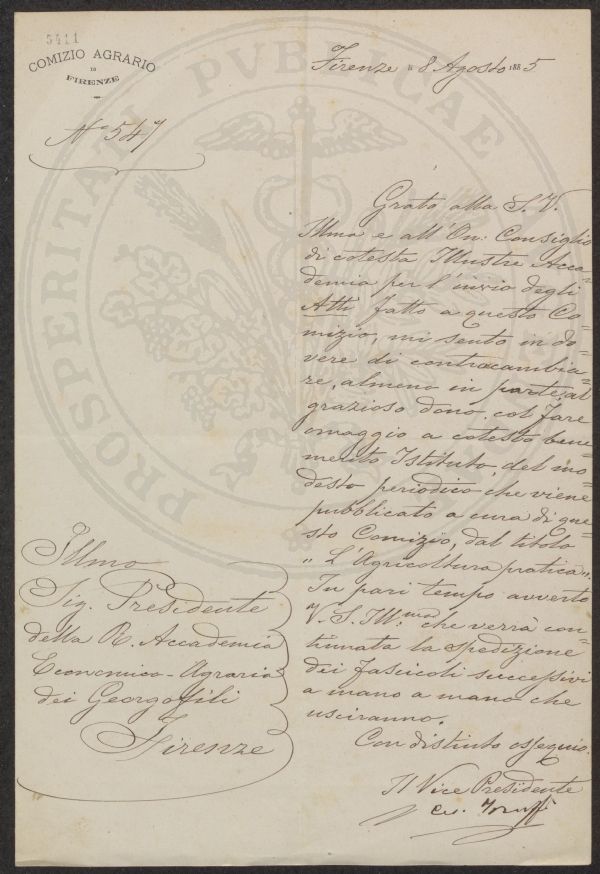 5411
COMIZIO AGRARIO
DI
FIRENZE
Firenze li 8 Agosto 1885
No 547
Grato alla S. V.
Illma e all' On: Consiglio
di cotesta Illustre Acca=
demia per l'invio degli
Atti fatto a questo Co=
mizio, mi sento in do=
vere di contraccambia=
re, almeno in parte, al
grazioso dono, col fare
omaggio a cotesto bene=
merito Istituto, del mo=
desto periodico che viene
pubblicato a cura di que=
sto Comizio, dal titolo
" L'Agricoltura pratica".
In pari tempo avverto
V. S. Ill.ma che verrà con=
tinuata la spedizione
dei fascicoli successivi
a mano a mano che
usciranno.
Con distinto ossequio.
Il Vice Presidente
Illmo
Sig. Presidente
della R. Accademia
Economico-Agraria
dei Georgofili
Firenze
PROSPERITATI PUBLICAE